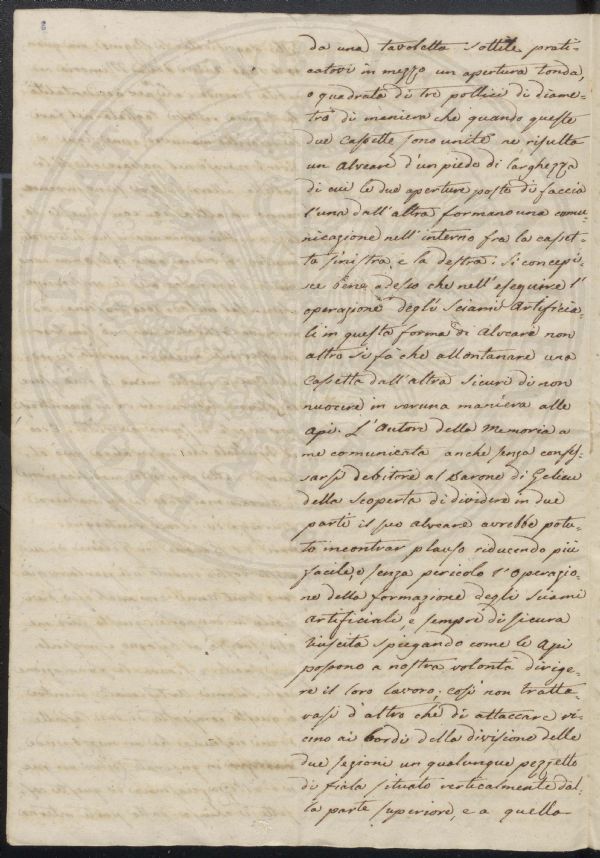 da una tavoletta sottile prati-
catovi in mezzo un apertura tonda,
o quadrata di tre pollici di diame-
tro di maniera che quando queste
due Cassette sono unite ne risulta
un Alveare d'un piede di larghezza
di cui le due aperture poste di faccia
l'una dall'altra formano una comu-
nicazione nell'interno fra la casset-
ta sinistra, e la destra: si concepi-
sce bene adesso che nell'eseguire l'
operazione degli Sciami Artificia-
li in questa forma di Alveare non
altro si fà che allontanare una
Cassetta dall'altra sicuri di non
nuocere in veruna maniera alle
Api. L'Autore della Memoria a
me comunicata anche senza confes-
sarsi debitore al Barone di Gelieu
della scoperta di dividere in due
parti il suo alveare avrebbe potu-
to incontrar plauso riducendo più
facile, e senza pericolo l'Operazio-
ne della formazione degli sciami
Artificiali, e sempre di sicura
riuscita spiegando come le Api
possono a nostra volontà dirige-
re il loro lavoro; così non tratta-
vasi d'altro che di attaccare vi-
cino ai bordi della divisione delle
due sezioni un qualunque pezzetto
di fiala situato verticalmente dal-
la parte superiore, e a quella